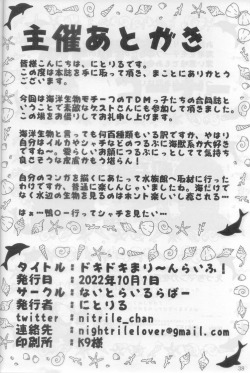 主催あとがき
皆様こんにちは、にとりるです。
この度は本誌を手に取って頂き、まことにありがとうございます。
今回は海洋生物モチーフのTDMっ子たちの合同誌として素敵なゲストさんにも参加して頂きました。
この場をお借りしてお礼申し上げます。
海洋生物と言っても何百種類もいる訳ですが、やはり
自分はイルカやシャチなどのつるぷにな海獣系が大好き
ですね〜。愛らしいお顔につるぷにっとしてて気持ち
良さそうな皮膚がもう堪らん！
自分のマンガを描くにあたって水族館へ取材に行った
わけですが、普通に楽しんじゃいましたね。海だけで
なく水辺の生き物を見るのはホント楽しいし癒される…
はぁ…鴨○ー行ってシャチを見たい…
タイトル：ドキドキまり〜んらいふ！
発行日：2022年10月7日
サークル：ないとらいるらばー
発行者：にとりる
twitter：nitrile_chan
連絡先：nightrilelover@gmail.com
印刷所：K9様